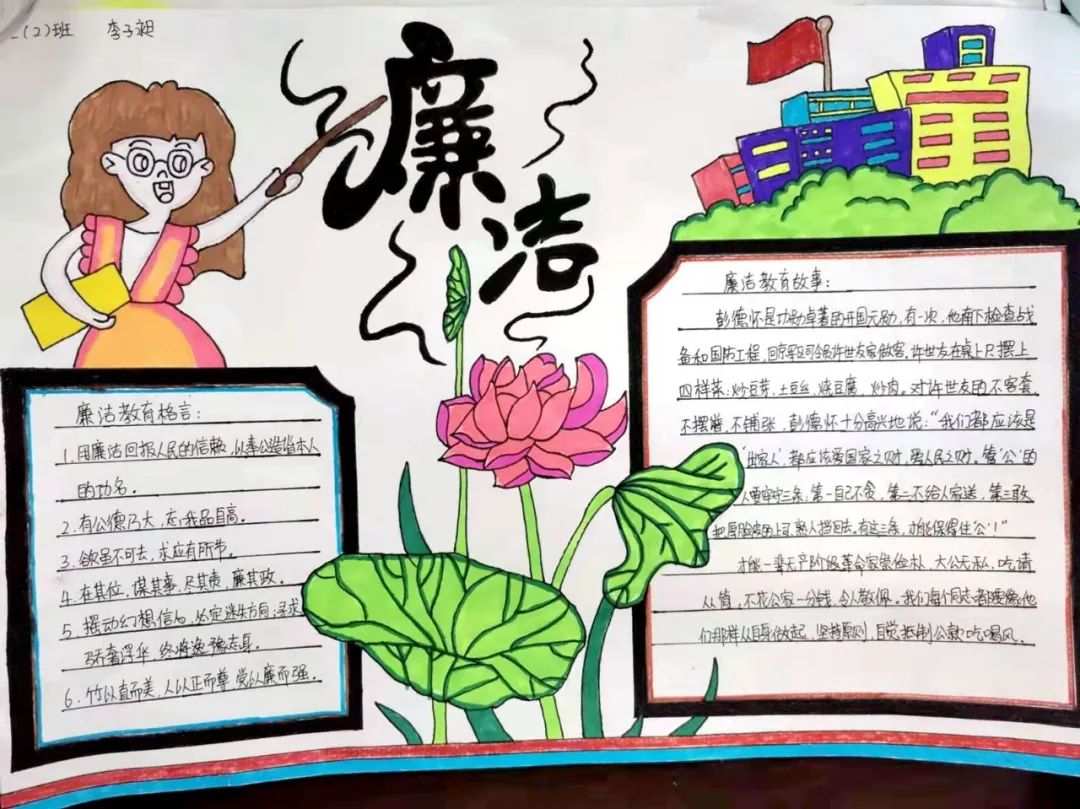 (2)班 李子昶
廉
洁
廉洁教育格言:
1.用廉洁回报人民的信赖,以奉公造皆本人
的功名。
2.有公德乃大,忘我品自高。
3.欲虽不可去,求应有所节。
4.在其位,谋其事,尽其责,廉其政。
5.摆动幻想信心,必定迷失方向;寻求
骄奢浮华,终将逸豫忘身。
6.竹以直而美,人以正而尊,党以廉而强。
廉洁教育故事:
彭德怀是功勋卓著的开国元勋,有一次,他南下检查战
备和国防工程,回京军区司令员许世友家做客,许世友在桌上只摆上
四样菜:炒豆芽、土豆丝、烧豆腐、炒肉。对许世友的不客套、
不摆谱、不铺张,彭德怀十分高兴地说:“我们都应该是
‘出家人’都应该爱国家之财,爱人民之财。管‘公’的
人要牢守三条,第一自己不贪,第二不给人家送,第三敢
把厚脸皮的上司、熟人挡回去,有这三条,才能保得住公!”
老一辈无产阶级革命家崇俭朴、大公无私,吃请
从值,不花公家一分钱,令人敬佩。我们每个同志都要像他
们那样从自身做起,坚持原则,自觉抵制公款吃喝风。